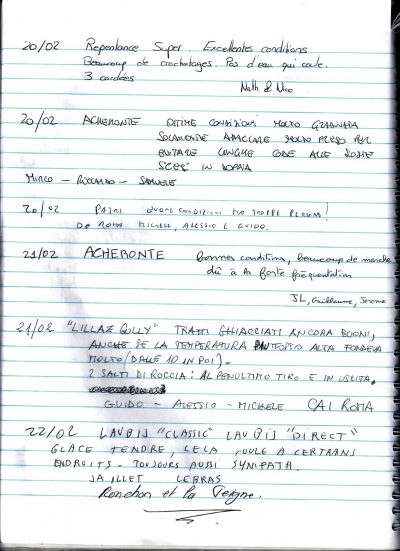 20/02 Repentance Super. Excellentes conditions
Beaucoup de crochetages. Pas d'eau qui coule.
3 cordées
Nath & Nico
20/02 ACHERONTE OTTIME CONDIZIONI MOLTO GRADINATA
SOLAMENTE ATTACCARE MOLTO PRESTO PER
EVITARE LUNGHE CODE ALLE SOSTE
SCESI IN DOPPIA
MIRCO - RICCARDO - SAMUELE
20/02 PATRI BUONE CONDIZIONI MA TROPPE PERSONE!
DA ROMA MICHELE, ALESSIO E GUIDO.
21/02 ACHERONTE bonnes conditions, beaucoup de marche
dû à la forte fréquentation
JL, Guillaume, Jerome
21/02 "LILLAZ GULLY" TRATTI GHIACCIATI ANCORA BUONI,
ANCHE SE LA TEMPERATURA PIUTTOSTO ALTA FONDEVA
MOLTO (DALLE 10 IN POI).
2 SALTI DI ROCCIA: AL PENULTIMO TIRO E IN USCITA.
GUIDO - ALESSIO - MICHELE CAI ROMA
22/02 LAUBIJ "CLASSIC" LAUBIJ "DIRECT"
GLACE TENDRE, CELA COULE A CERTAINS
ENDROITS - TOUJOURS AUSSI SYMPATH.
JAILLET LEBRAS
Ronchon et la Teigne.